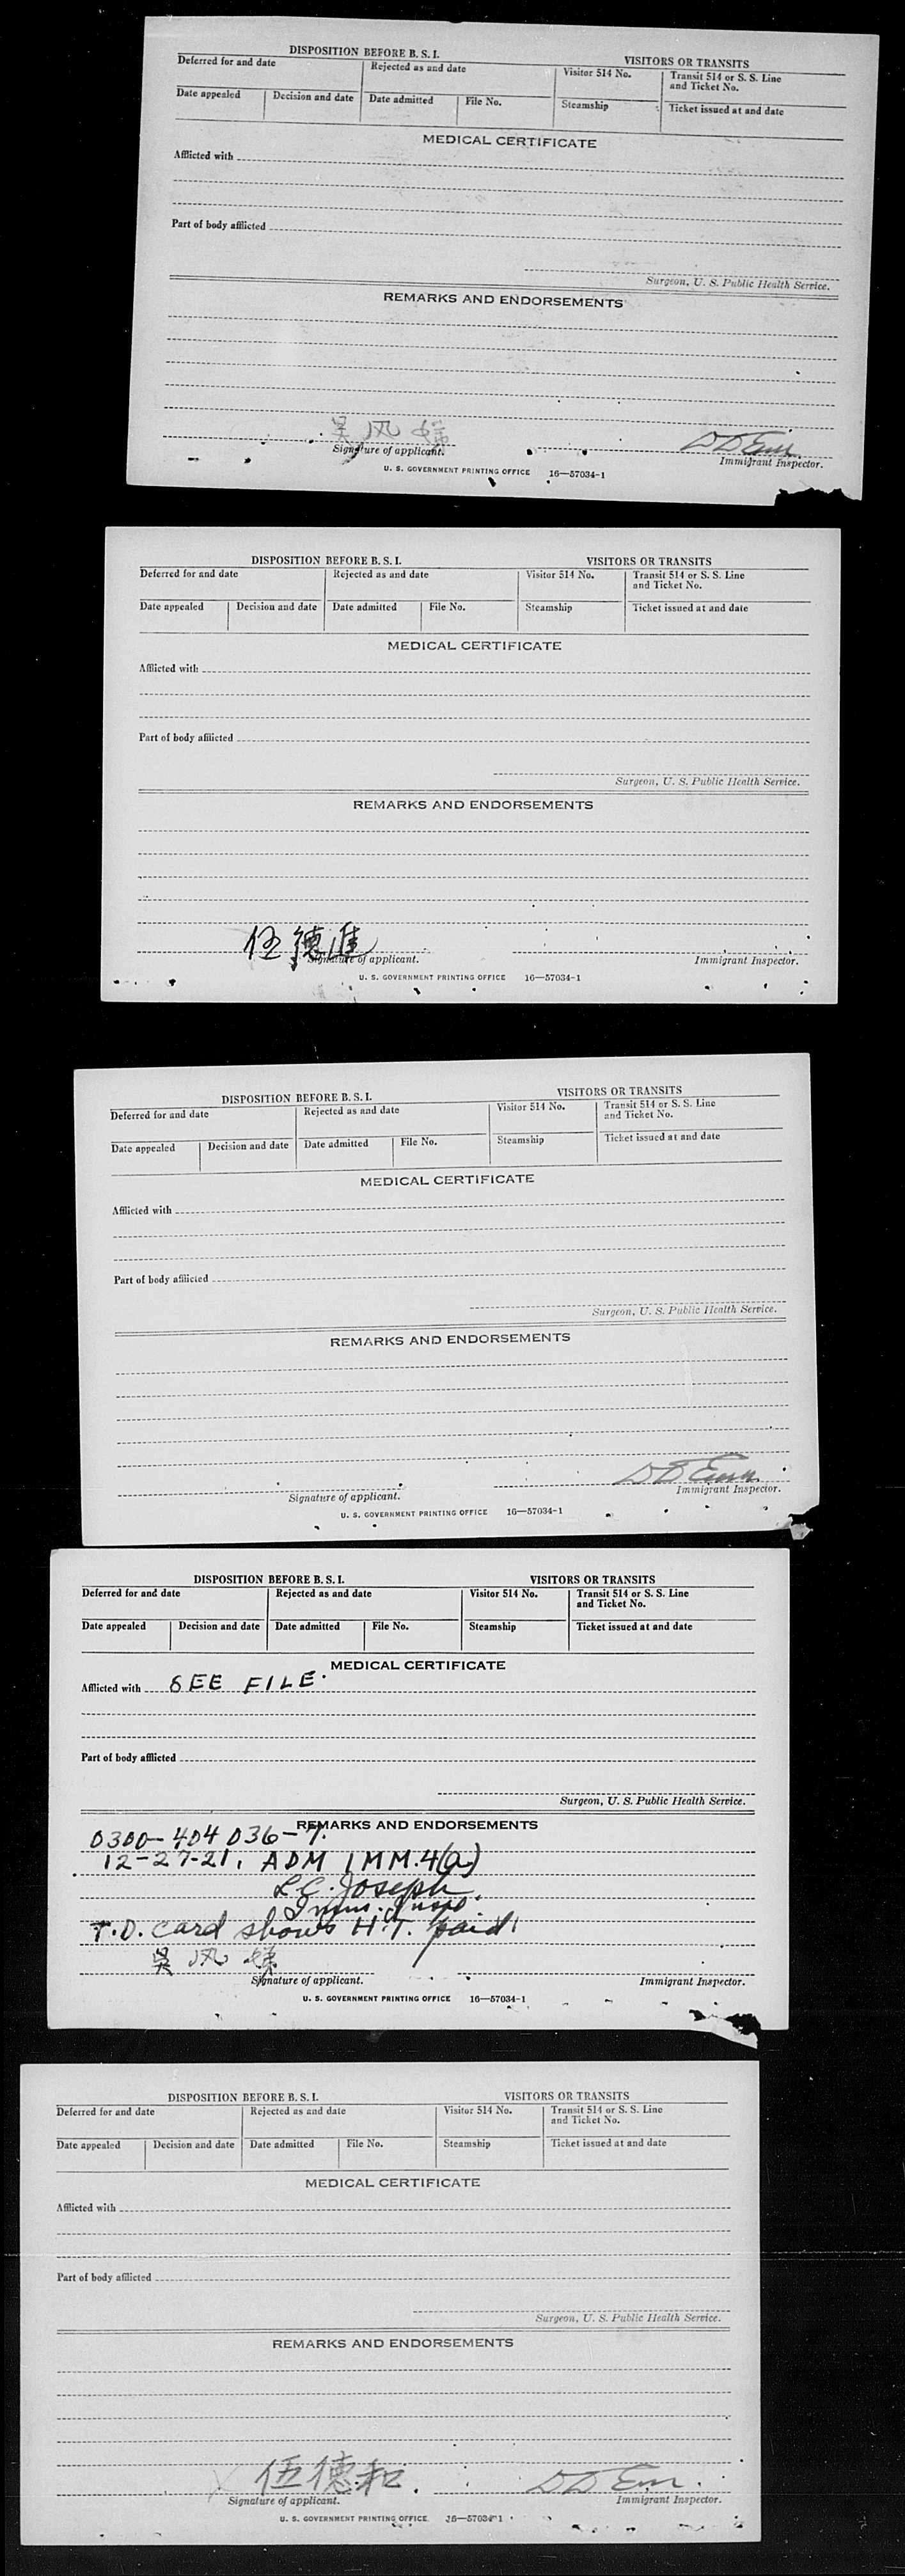 DISPOSITION BEFORE B. S. I. VISITORS OR TRANSITS
Deferred for and date Rejected as and date Visitor 514 No. Transit 514 or S. S. Line and Ticket No.
Date appealed Decision and date Date admitted File No. Steamship Ticket issued at and date
MEDICAL CERTIFICATE
Afflicted with
Part of body afflicted
Surgeon, U. S. Public Health Service.
REMARKS AND ENDORSEMENTS
吴风
Signature of applicant. Immigrant Inspector.
U. S. GOVERNMENT PRINTING OFFICE 16—57034-1
DISPOSITION BEFORE B. S. I. VISITORS OR TRANSITS
Deferred for and date Rejected as and date Visitor 514 No. Transit 514 or S. S. Line and Ticket No.
Date appealed Decision and date Date admitted File No. Steamship Ticket issued at and date
MEDICAL CERTIFICATE
Afflicted with
Part of body afflicted
Surgeon, U. S. Public Health Service.
REMARKS AND ENDORSEMENTS
伍德進
Signature of applicant. Immigrant Inspector.
U. S. GOVERNMENT PRINTING OFFICE 16—57034-1
DISPOSITION BEFORE B. S. I. VISITORS OR TRANSITS
Deferred for and date Rejected as and date Visitor 514 No. Transit 514 or S. S. Line and Ticket No.
Date appealed Decision and date Date admitted File No. Steamship Ticket issued at and date
MEDICAL CERTIFICATE
Afflicted with
Part of body afflicted
Surgeon, U. S. Public Health Service.
REMARKS AND ENDORSEMENTS
Signature of applicant. Immigrant Inspector.
U. S. GOVERNMENT PRINTING OFFICE 16—57034-1
DISPOSITION BEFORE B. S. I. VISITORS OR TRANSITS
Deferred for and date Rejected as and date Visitor 514 No. Transit 514 or S. S. Line and Ticket No.
Date appealed Decision and date Date admitted File No. Steamship Ticket issued at and date
MEDICAL CERTIFICATE
Afflicted with SEE FILE.
Part of body afflicted
Surgeon, U. S. Public Health Service.
REMARKS AND ENDORSEMENTS
0300-404036-7.
12-27-21, ADM IMM.4(a)
L.C. Joseph
Imm. Insp.
T.D. card shows H.T. paid.
吳风
Signature of applicant. Immigrant Inspector.
U. S. GOVERNMENT PRINTING OFFICE 16—57034-1
DISPOSITION BEFORE B. S. I. VISITORS OR TRANSITS
Deferred for and date Rejected as and date Visitor 514 No. Transit 514 or S. S. Line and Ticket No.
Date appealed Decision and date Date admitted File No. Steamship Ticket issued at and date
MEDICAL CERTIFICATE
Afflicted with
Part of body afflicted
Surgeon, U. S. Public Health Service.
REMARKS AND ENDORSEMENTS
X 伍德和
Signature of applicant. Immigrant Inspector.
U. S. GOVERNMENT PRINTING OFFICE 16—57034-1